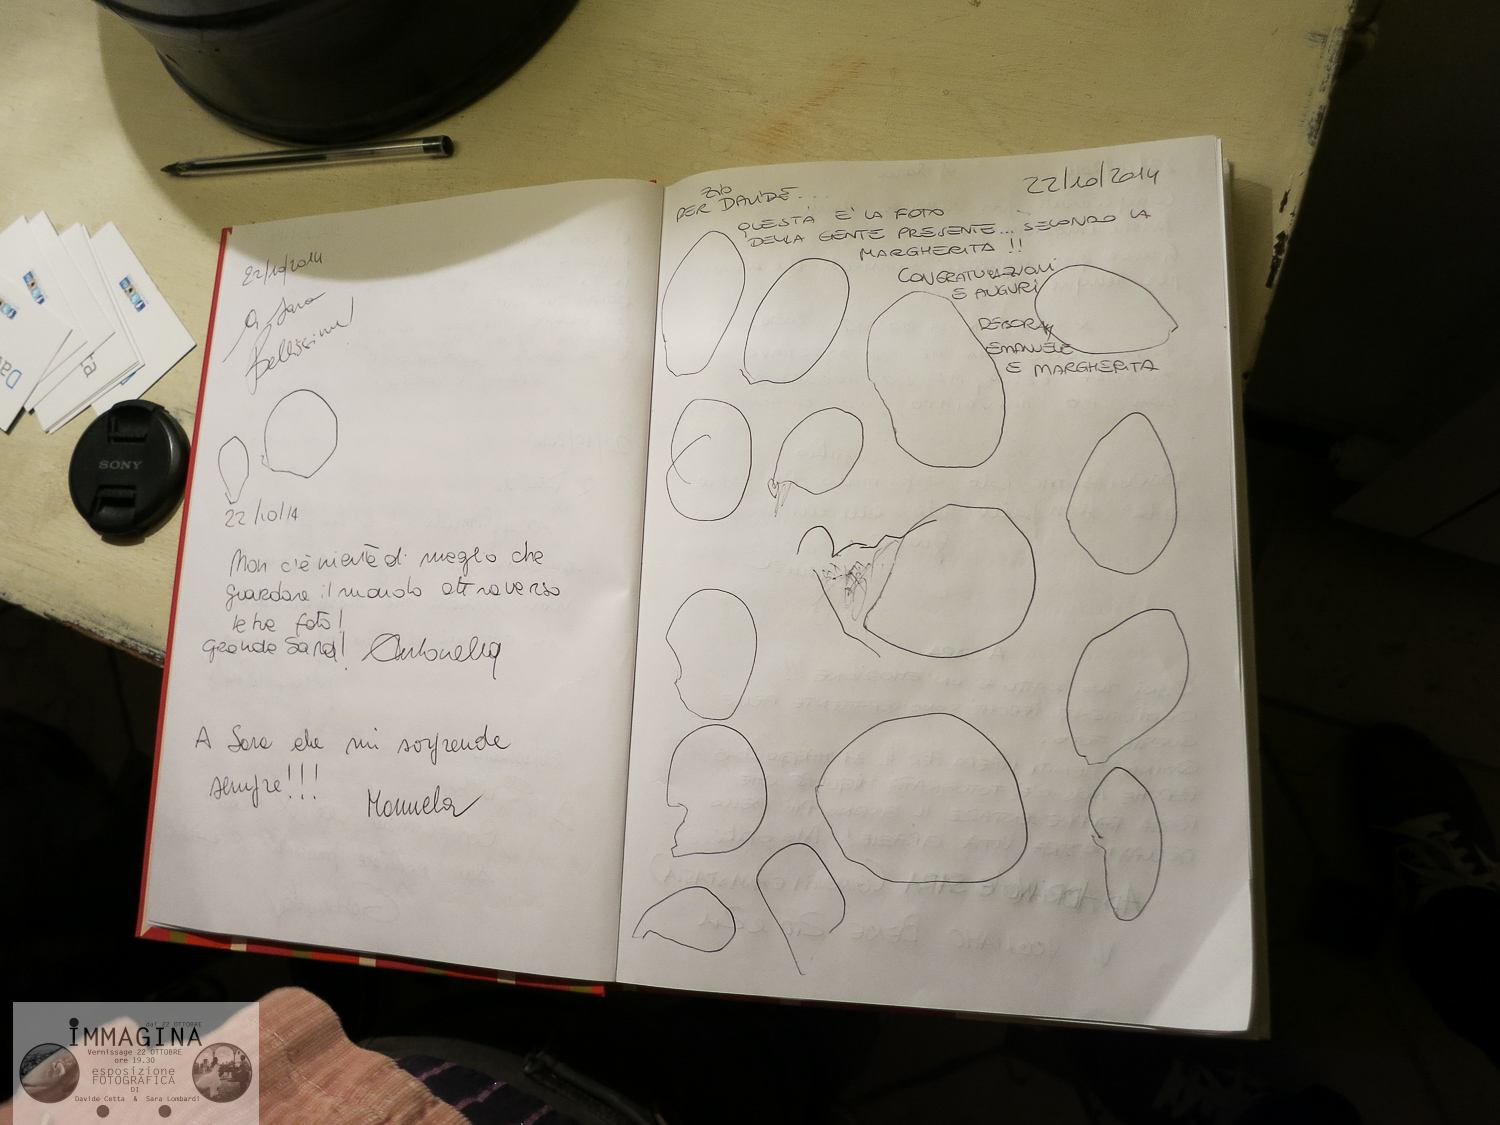 22/10/2014
A Sara
Bellissime!
22/10/14
Non c'è niente di meglio che
guardare il mondo attraverso
le tue foto!
Grande Sara! Antonella
A Sara che mi sorprende
sempre!!!
Manuela
22/10/2014
zio
PER DAVIDE...
QUESTA È LA FOTO
DELLA GENTE PRESENTE... SECONDO LA
MARGHERITA !!
CONGRATULAZIONI
E AUGURI
DEBORAH
EMANUELE
E MARGHERITA
SONY
dal 22 OTTOBRE
IMMAGINA
Vernissage 22 OTTOBRE
ore 19.30
esposizione
FOTOGRAFICA
DI
Davide Catta & Sara Lombardi